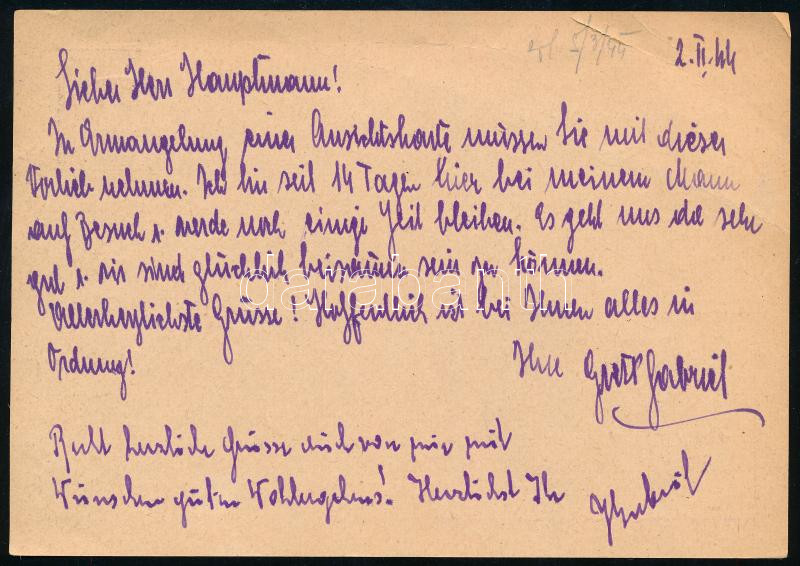 2.II.44
Lieber Herr Hauptmann!
In Ermangelung einer Ansichtskarte müssen Sie mit dieser
Vorlieb nehmen. Ich bin seit 14 Tagen hier bei meinem Mann
auf Besuch u. werde noch einige Zeit bleiben. Es geht uns da sehr
gut u. wir sind glücklich, beisammen sein zu können.
Allerherzlichste Grüsse! Hoffentlich ist bei Ihnen alles in
Ordnung!
Ihre Gretl Gabriel
Recht herzliche Grüsse auch von mir mit
Wünschen guten Wohlergehens! Herzlichst Ihr
darabanth